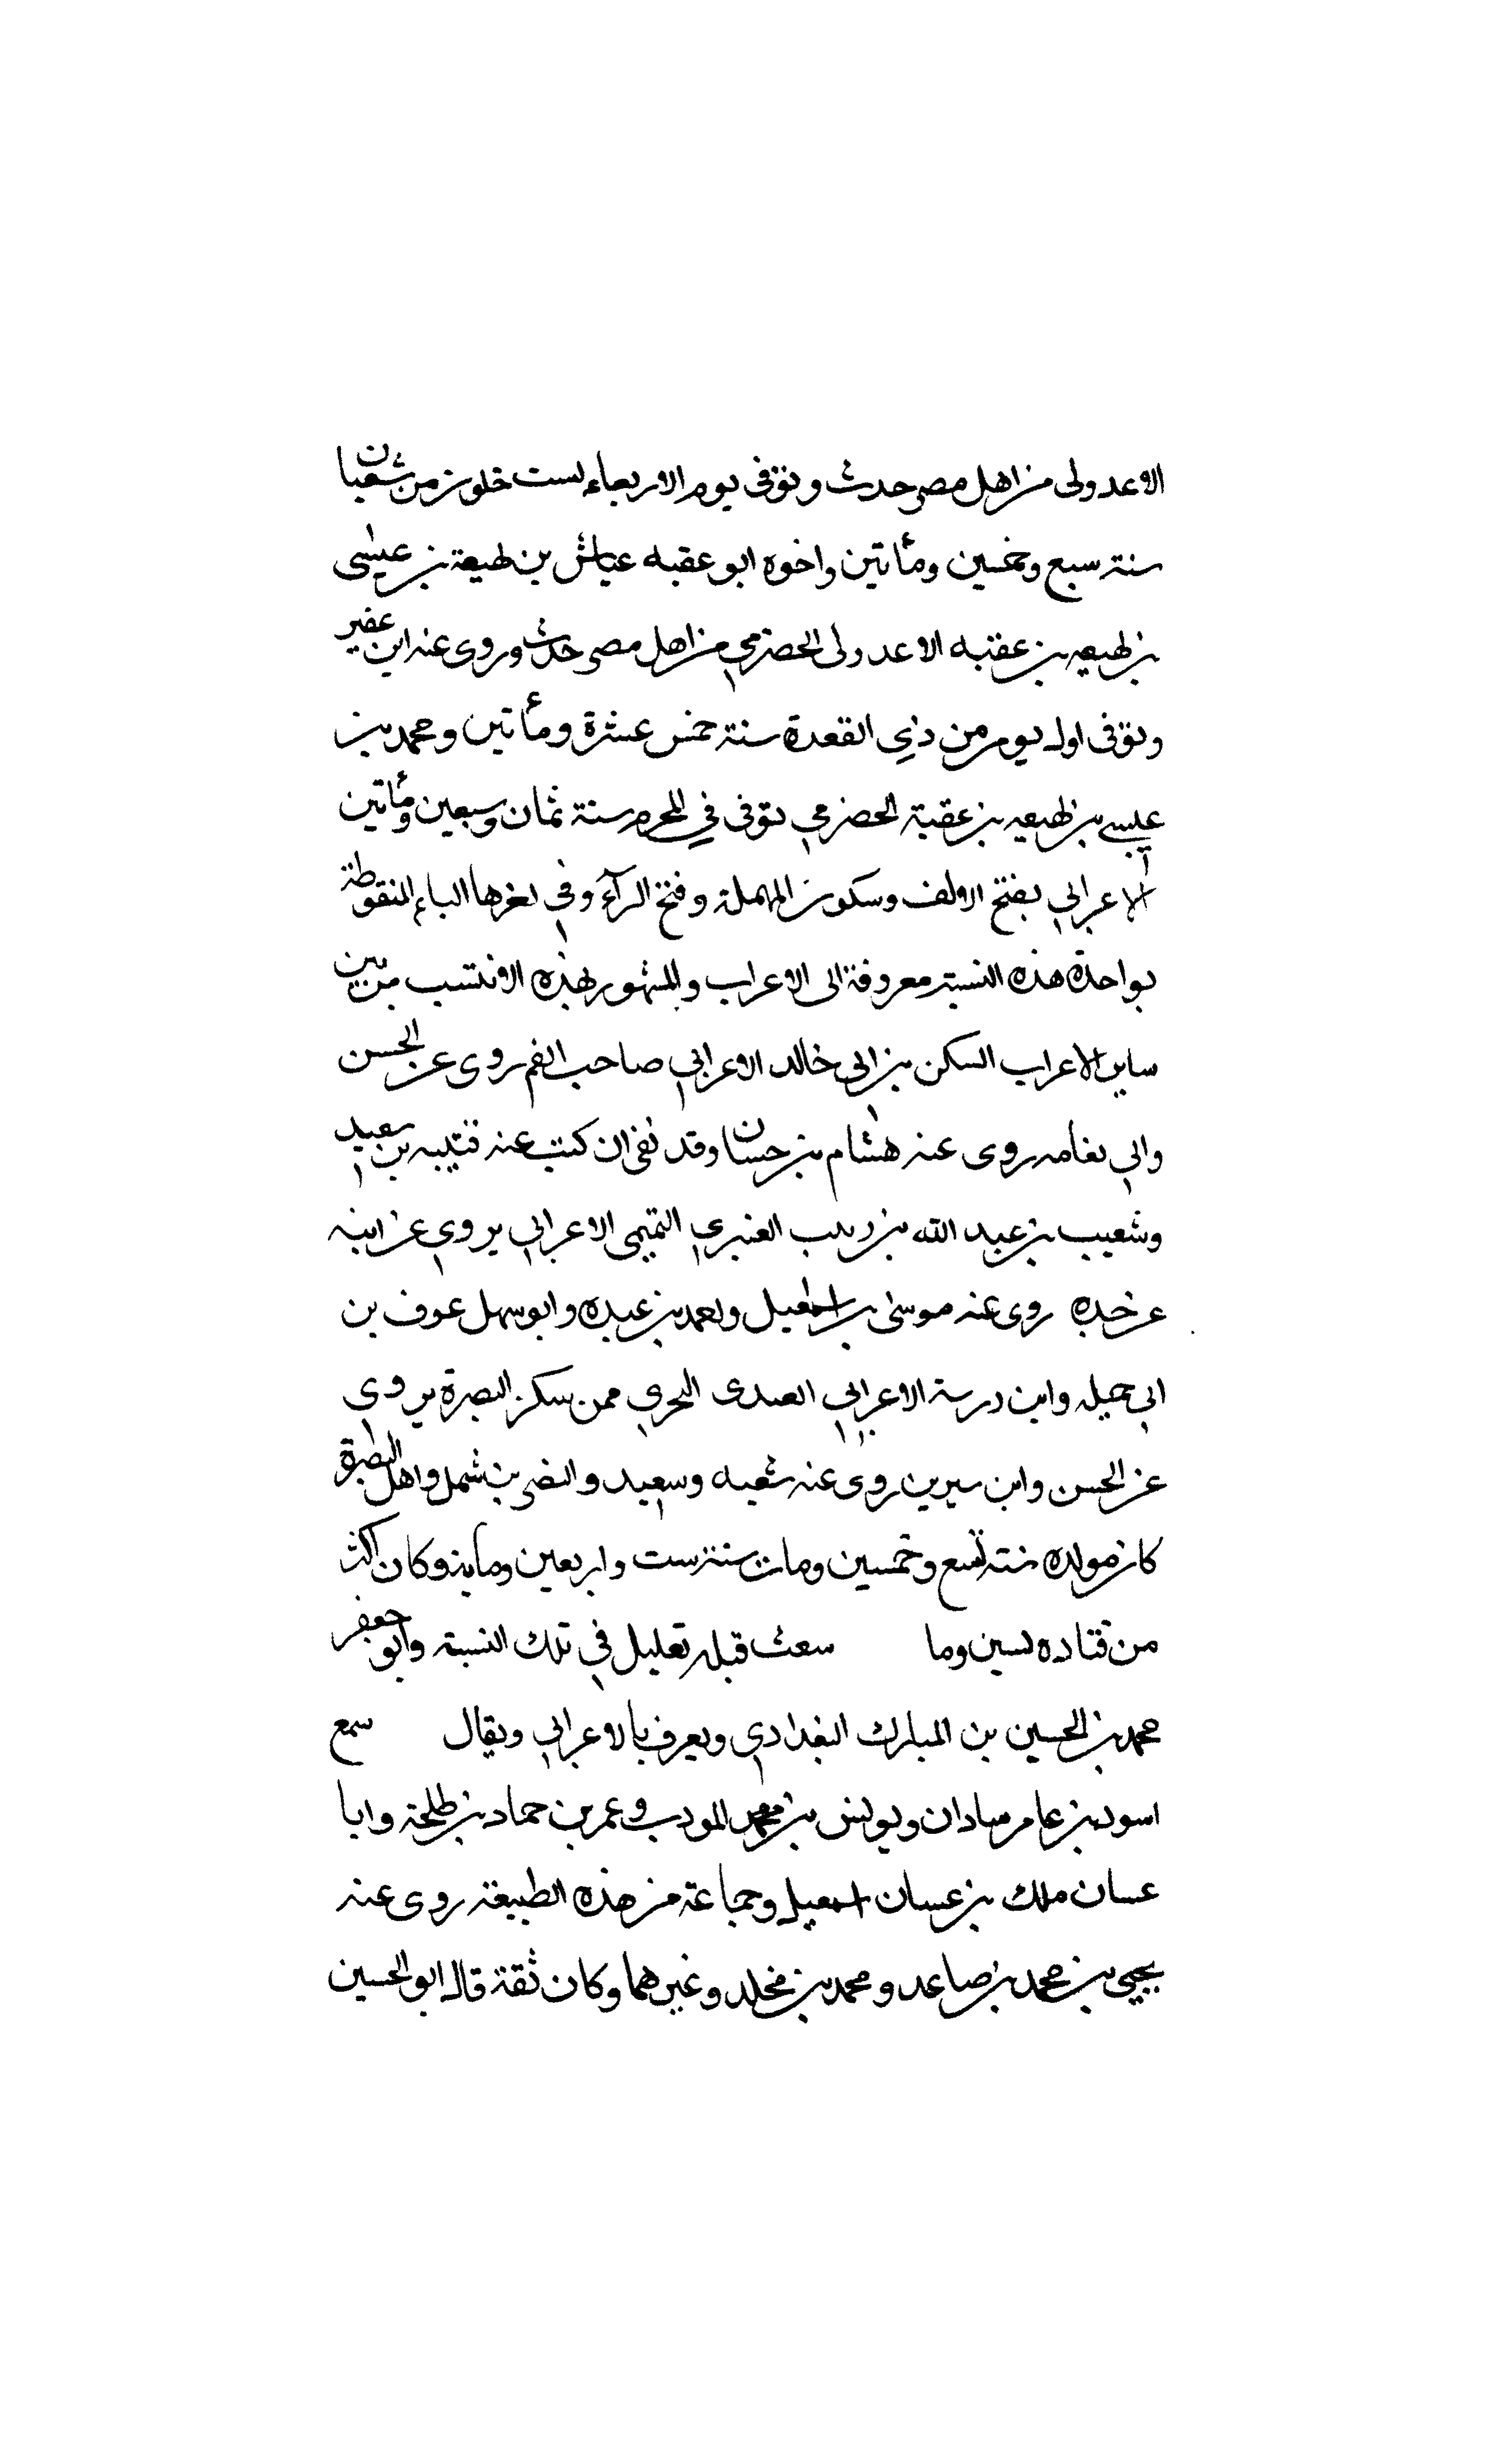 الاعدولى من اهل مصر حدث وتوفى يوم الاربعاء لست خلون من شعبان
سنة سبع وخمسين ومأتين واخوه ابو عقبه عياش بن لهيعة بن عيسى
بن لهيعه بن عقبه الاعدولى الحضرمي من اهل مصر حدث وروى عنه ابن عفير
وتوفى اول يوم من ذي القعدة سنة خمس عشرة ومأتين ومحمد بن
عيسى بن لهيعه بن عقبة الحضرمي توفى في المحرم سنة ثمان وسبعين ومأتين
الاعرابي بفتح الالف وسكون المهملة وفتح الرآء وفي اخرها الباء المنقوطة
بواحدة هذه النسبة معروفة الى الاعراب والمشهور بهذه الانتسب من بين
ساير الاعراب السكن بن ابي خالد الاعرابي صاحب الغم روى عن الحسن
وابي نعامه روى عنه هشام بن حسان وقد نفى ان كتب عنه قتيبه بن سعيد
وشعيب بن عبد الله بن زبيب العنبري التميمى الاعرابي يروي عن ابيه
عن جده روى عنه موسى بن اسمعيل واحمد بن عبده وابو سهل عوف بن
ابي جميله وابن درسة الاعرابي العبدى البحري ممن سكن البصرة يروى
عن الحسن وابن سيرين روى عنه شعبه وسعيد والنضر بن شميل واهل البصرة
كان مولده سنة تسع وخمسين ومات سنة ست واربعين ومايه وكان اكثر
من قتاده لسين وما سعث قبله تعليل في تلك النسبة وابو جعفر
محمد بن الحسين بن المبارك البغدادي ويعرف بالاعرابي ويقال سمع
اسود بن عامر سادان ويونس بن محمد المودب وعمر بن حماد بن طلحة وابا
عسان ملك بن عسان اسمعيل وجماعة من هذه الطبيعة روى عنه
يحيى بن محمد بن صاعد ومحمد بن مخلد وغيرهما وكان ثقة قال ابو الحسين